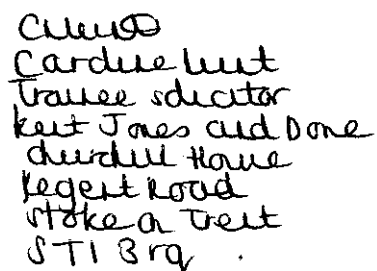 Caroline hurt
Trainee solicitor
kent Jones and Done
churchill House
Regent Road
Stoke on Trent
ST1 3rq .